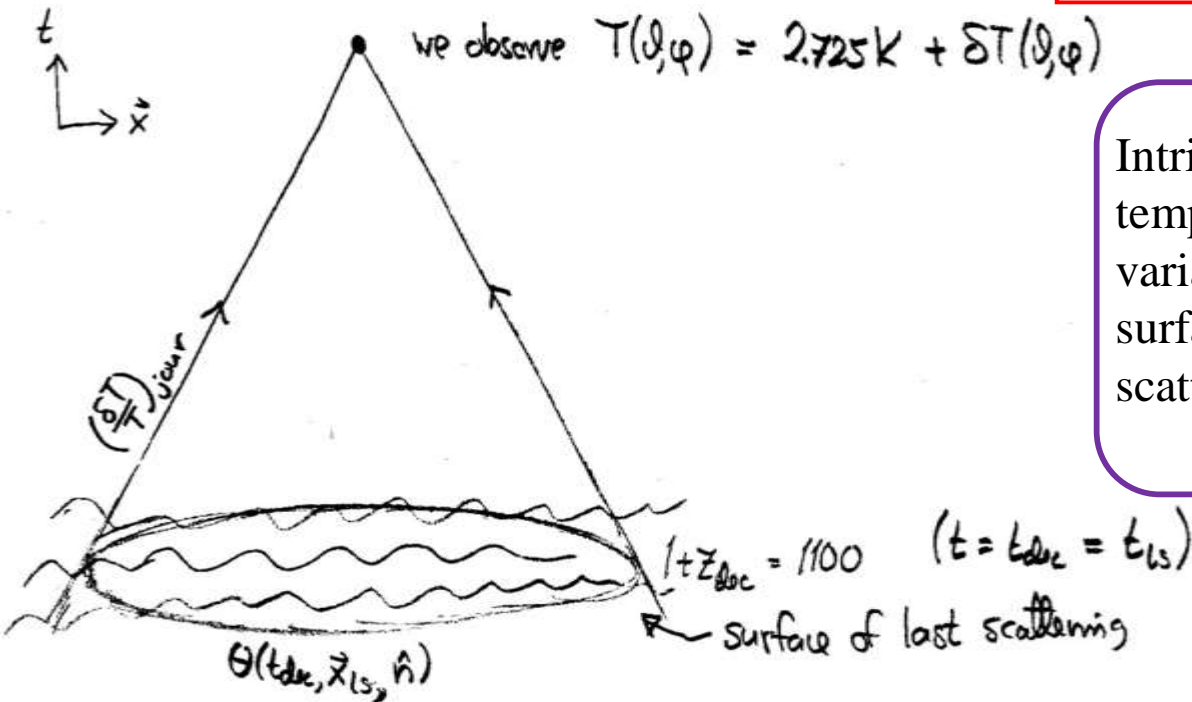 t
x⃗
we observe T(ϑ,φ) = 2.725K + δT(ϑ,φ)
Intri
temp
varia
surfa
scatt
(δT/T)jour
1+zdec = 1100 (t = tdec = tls)
surface of last scattering
Θ(tdec, x⃗ls, n̂)